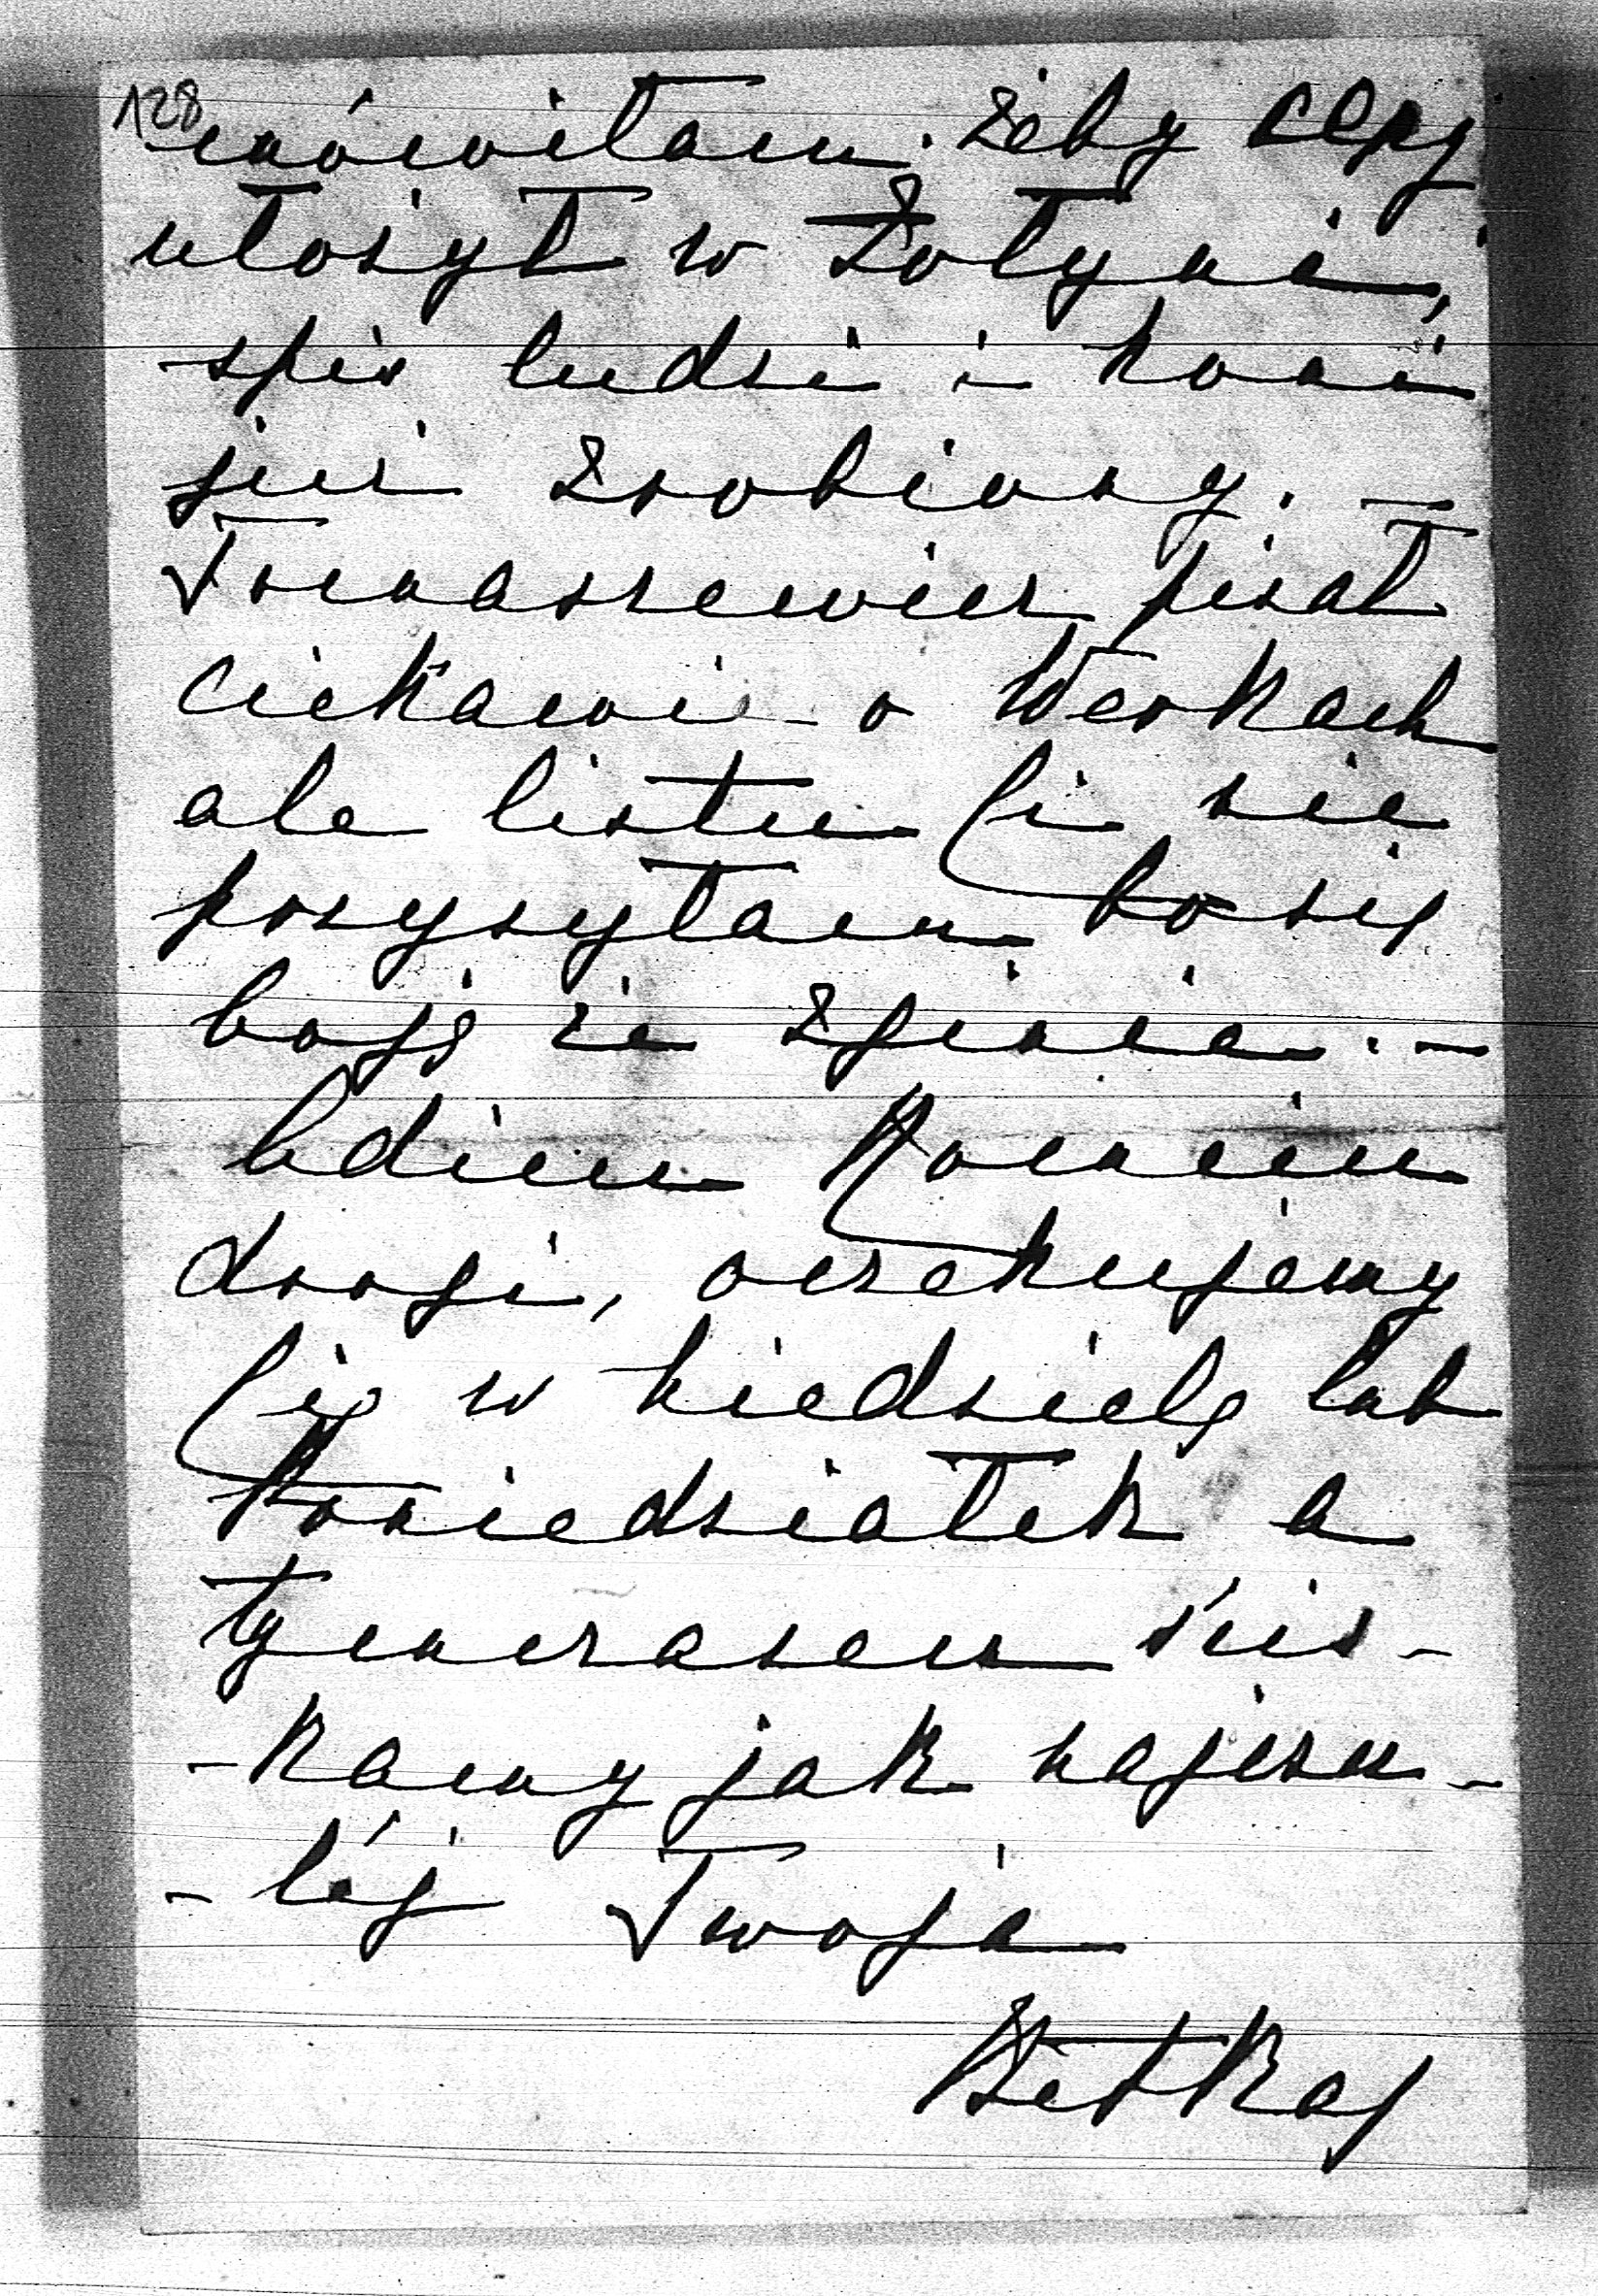 128
mówiłam żeby cepy
ułożył w Żołyni,
spis ludzi i koni
już zrobiony. —
Tomaszewicz pisał
ciekawie o Werkach
ale listu Ci nie
posyłam bo się
boję że zginie. —
Adieu Romciu
drogi, oczekujemy
Cię w niedzielę lub
Poniedziałek a
tymczasem ścis-
-kamy jak najczu-
-léj Twoja
BetKa